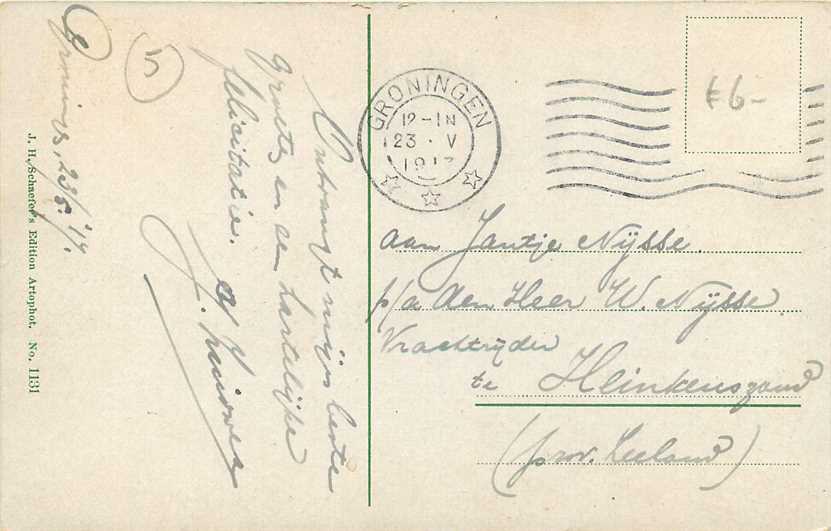 Groningen, 23/5 '17.
5
Ontvangt mijn beste
groeten en een hartelijke
felicitatie.
J. H. Schaefer's Edition Artophot. No. 1131
GRONINGEN
12-1N
23 · V
1917
€6-
aan Jantje Nijsse.
p/a den Heer W. Nijsse
Vrachtrijder
te Heinkenszand
(prov. Zeeland)